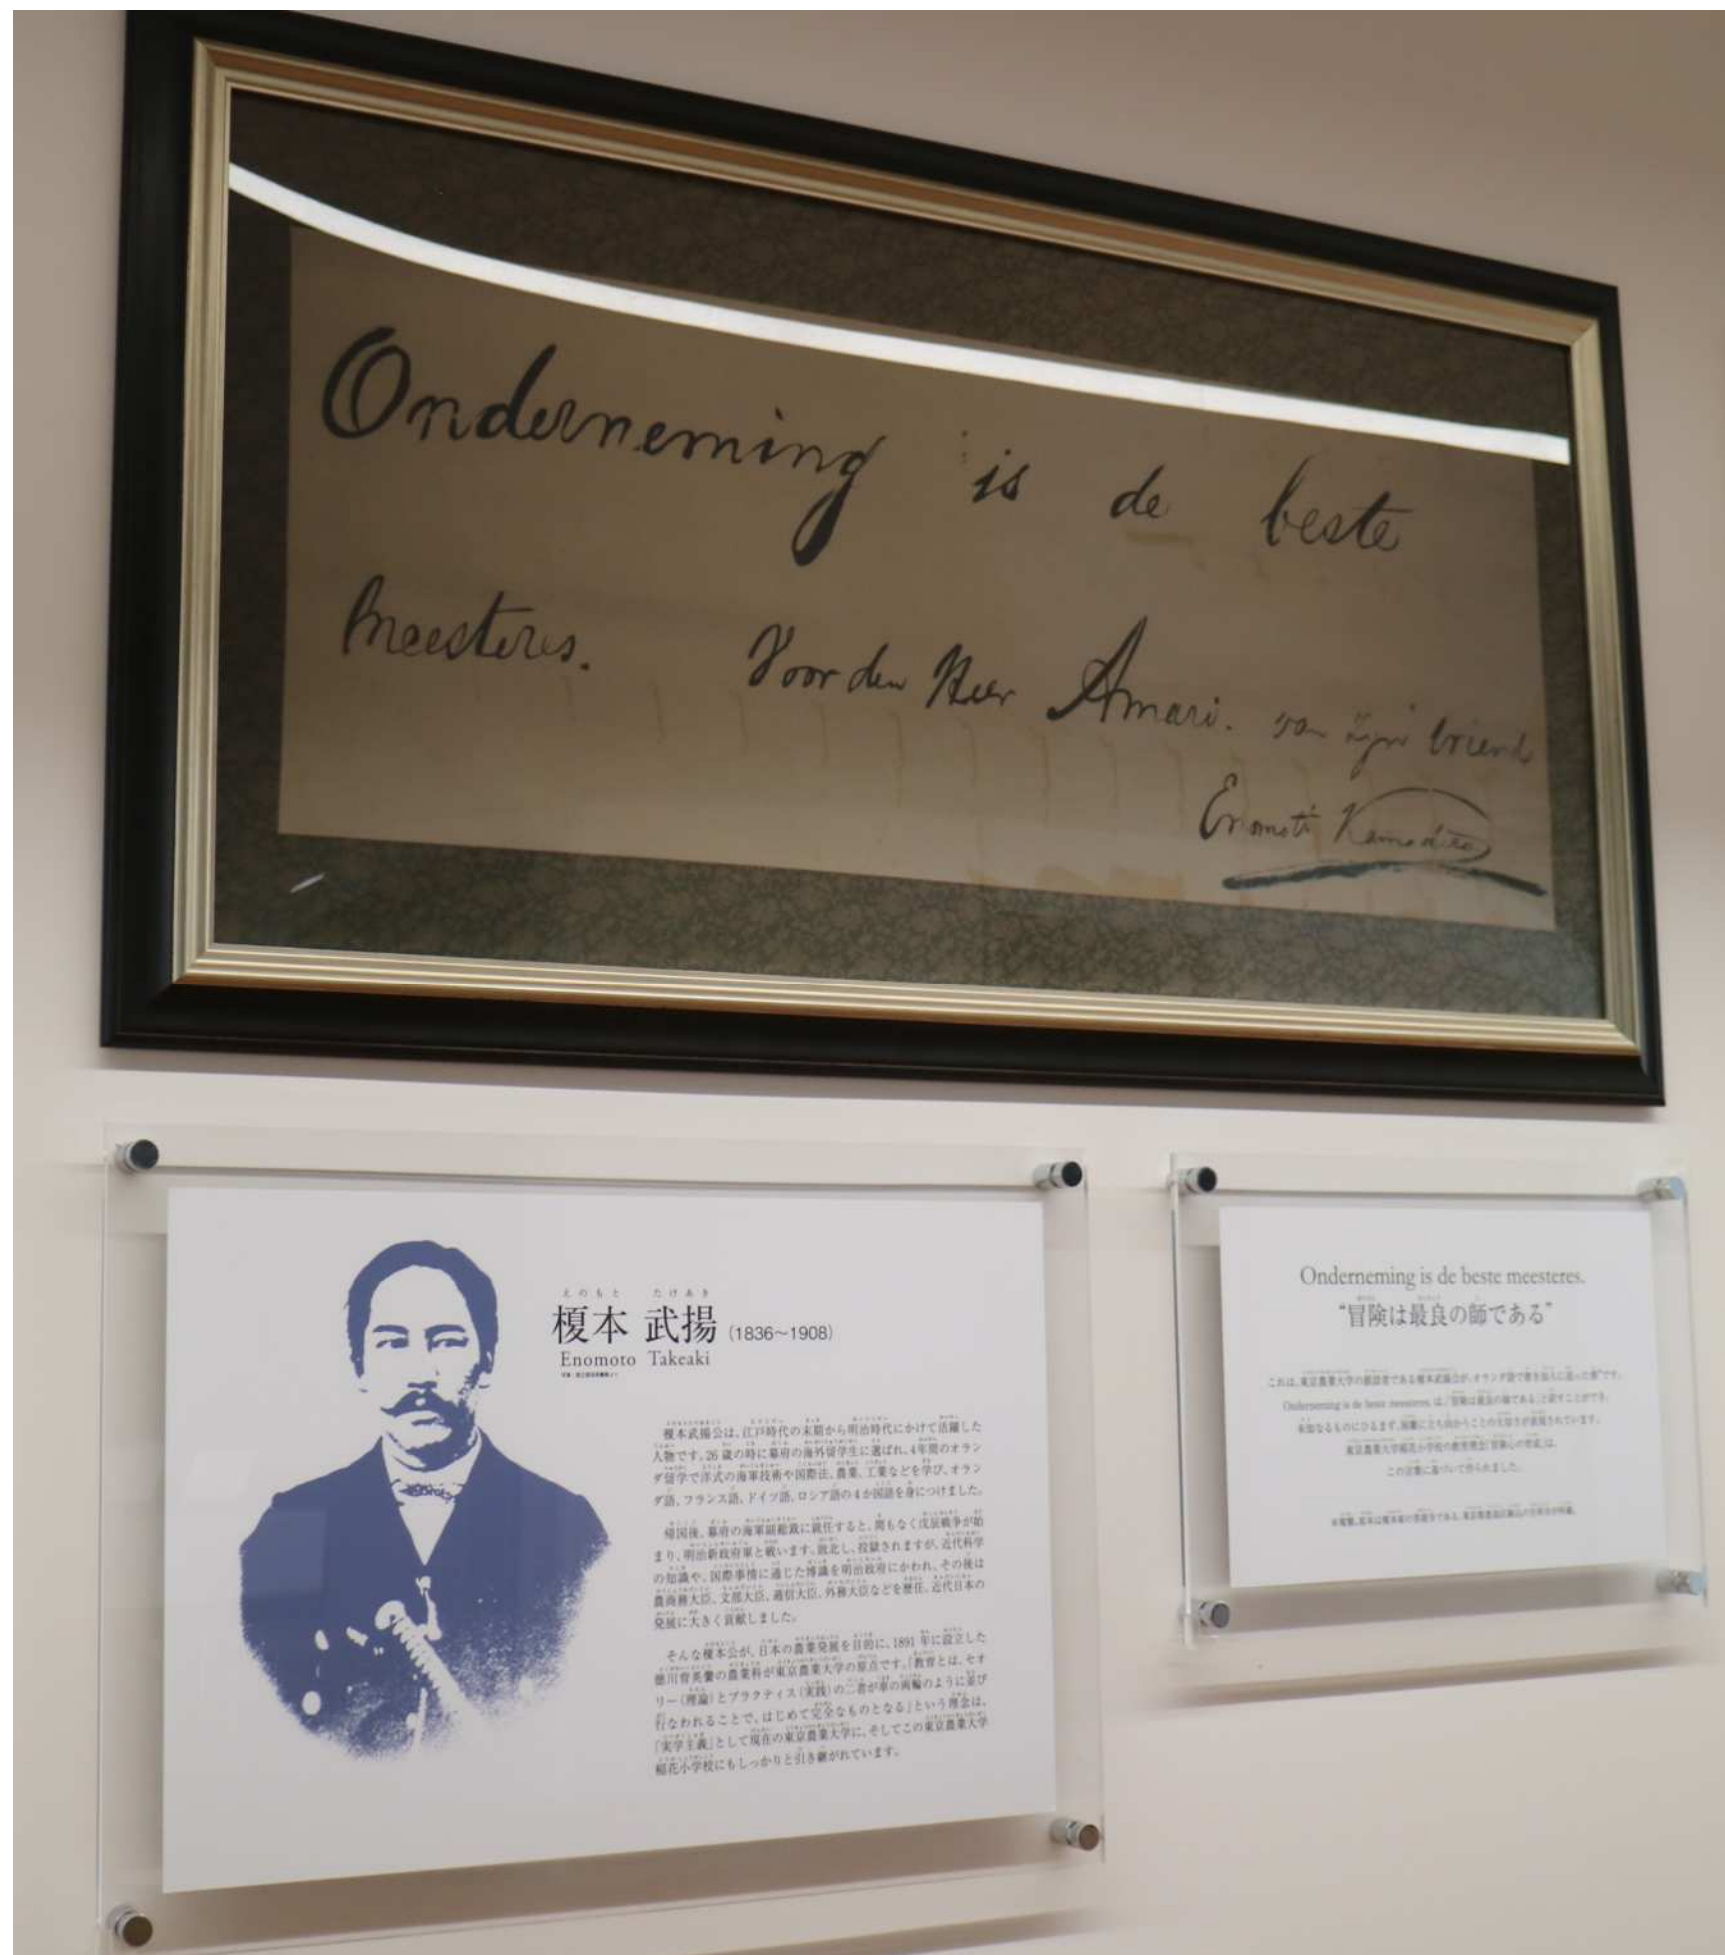 Onderneming is de beste
meesteres. Voor den Heer Amari. van zijn vriend
Enomoto
えのもと たけあき
榎本 武揚 (1836~1908)
Enomoto Takeaki
榎本武揚公は、江戸時代の末期から明治時代にかけて活躍した
人物です。26歳の時に幕府の海外留学生に選ばれ、4年間のオラン
ダ留学で洋式の海軍技術や国際法、農業、工業などを学び、オラン
ダ語、フランス語、ドイツ語、ロシア語の4か国語を身につけました。
帰国後、幕府の海軍副総裁に就任すると、間もなく戊辰戦争が始
まり、明治新政府軍と戦います。敗北し、投獄されますが、近代科学
の知識や、国際事情に通じた博識を明治政府にかわれ、その後は
農商務大臣、文部大臣、逓信大臣、外務大臣などを歴任、近代日本の
発展に大きく貢献しました。
そんな榎本公が、日本の農業発展を目的に、1891年に設立した
徳川育英黌の農業科が東京農業大学の原点です。「教育とは、セオ
リー(理論)とプラクティス(実践)の二者が車の両輪のように並び
行なわれることで、はじめて完全なものとなる」という理念は、
「実学主義」として現在の東京農業大学に、そしてこの東京農業大学
稲花小学校にもしっかりと引き継がれています。
Onderneming is de beste meesteres.
“冒険は最良の師である”
これは、東京農業大学の創設者である榎本武揚公が、オランダ語で書き友人に送った書です。
Onderneming is de beste meesteres. は、「冒険は最良の師である」と訳すことができ、
未知なるものにひるまず、困難に立ち向かうことの大切さが表現されています。
東京農業大学稲花小学校の教育理念「冒険心の育成」は、
この言葉に基づいて作られました。